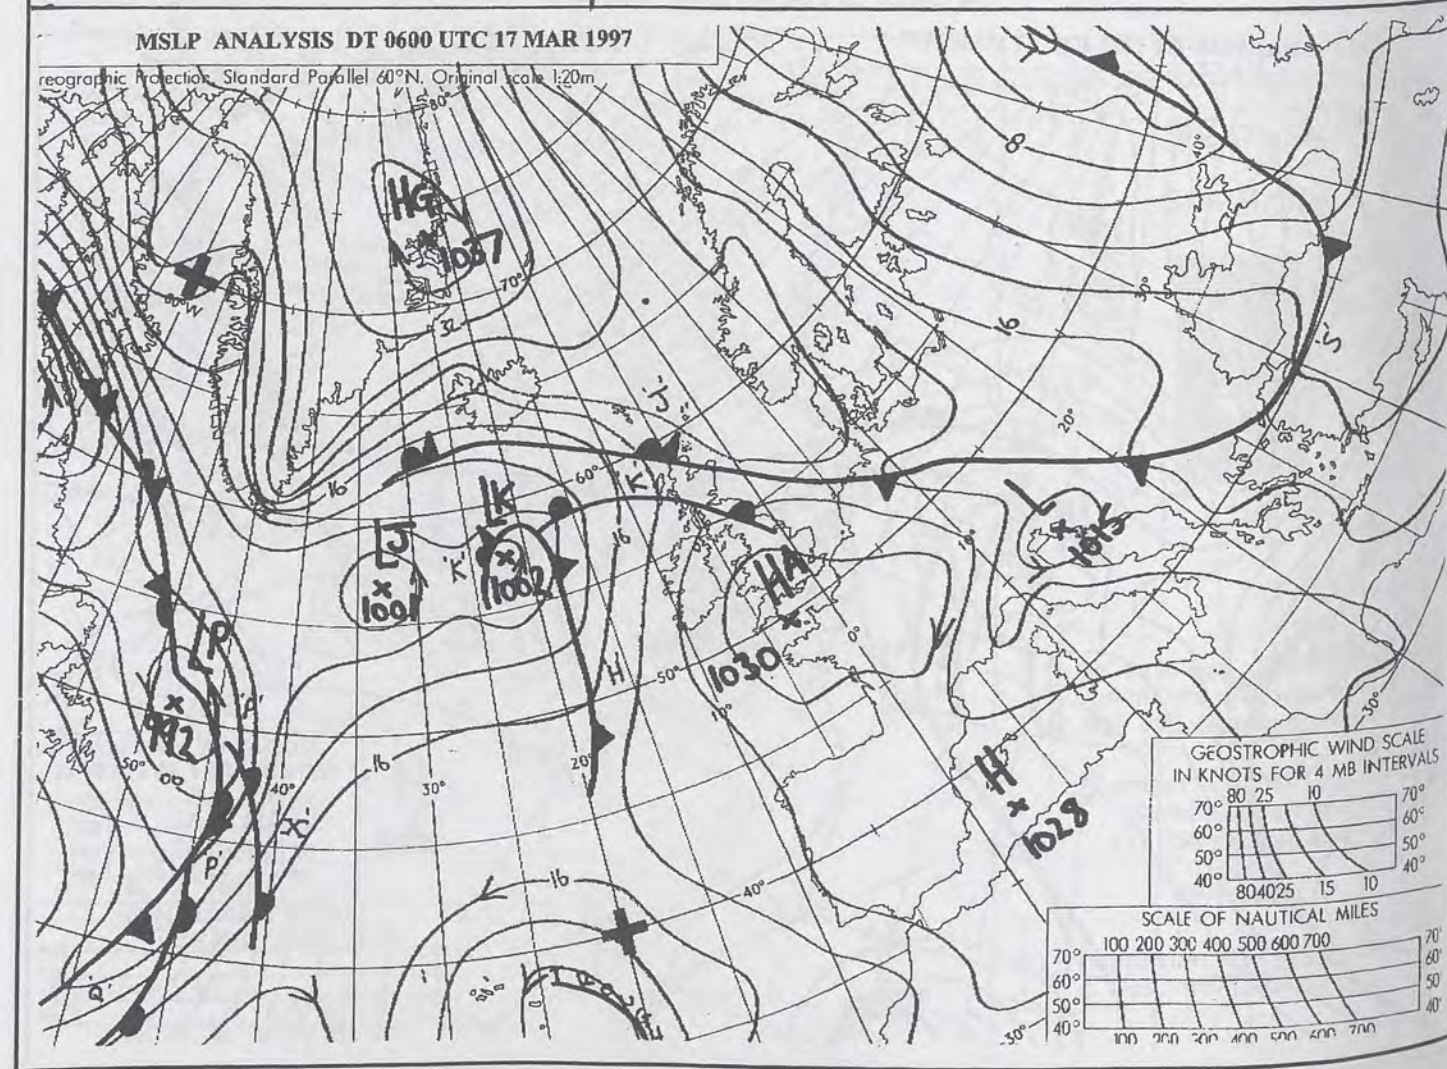 MSLP ANALYSIS DT 0600 UTC 17 MAR 1997
reographic Projection, Standard Parallel 60°N. Original scale 1:20m
80°
HG
1037
70°
32
60°W
8
40°
30°
16
'S'
'J'
20°
16
60°
'K'
LK
LJ
'K'
1002
1001
16
L
1015
10°
HA
1030
0°
50°
10°
H
LP
992
'P'
50°
00
40°
16
30°
20°
'X'
'P'
H
1028
30°
16
40°
'Q'
L
50°
GEOSTROPHIC WIND SCALE
IN KNOTS FOR 4 MB INTERVALS
80 25 10
70° 70°
60° 60°
50° 50°
40° 40°
80 40 25 15 10
SCALE OF NAUTICAL MILES
100 200 300 400 500 600 700
70° 70°
60° 60°
50° 50°
40° 40°
100 200 300 400 500 600 700